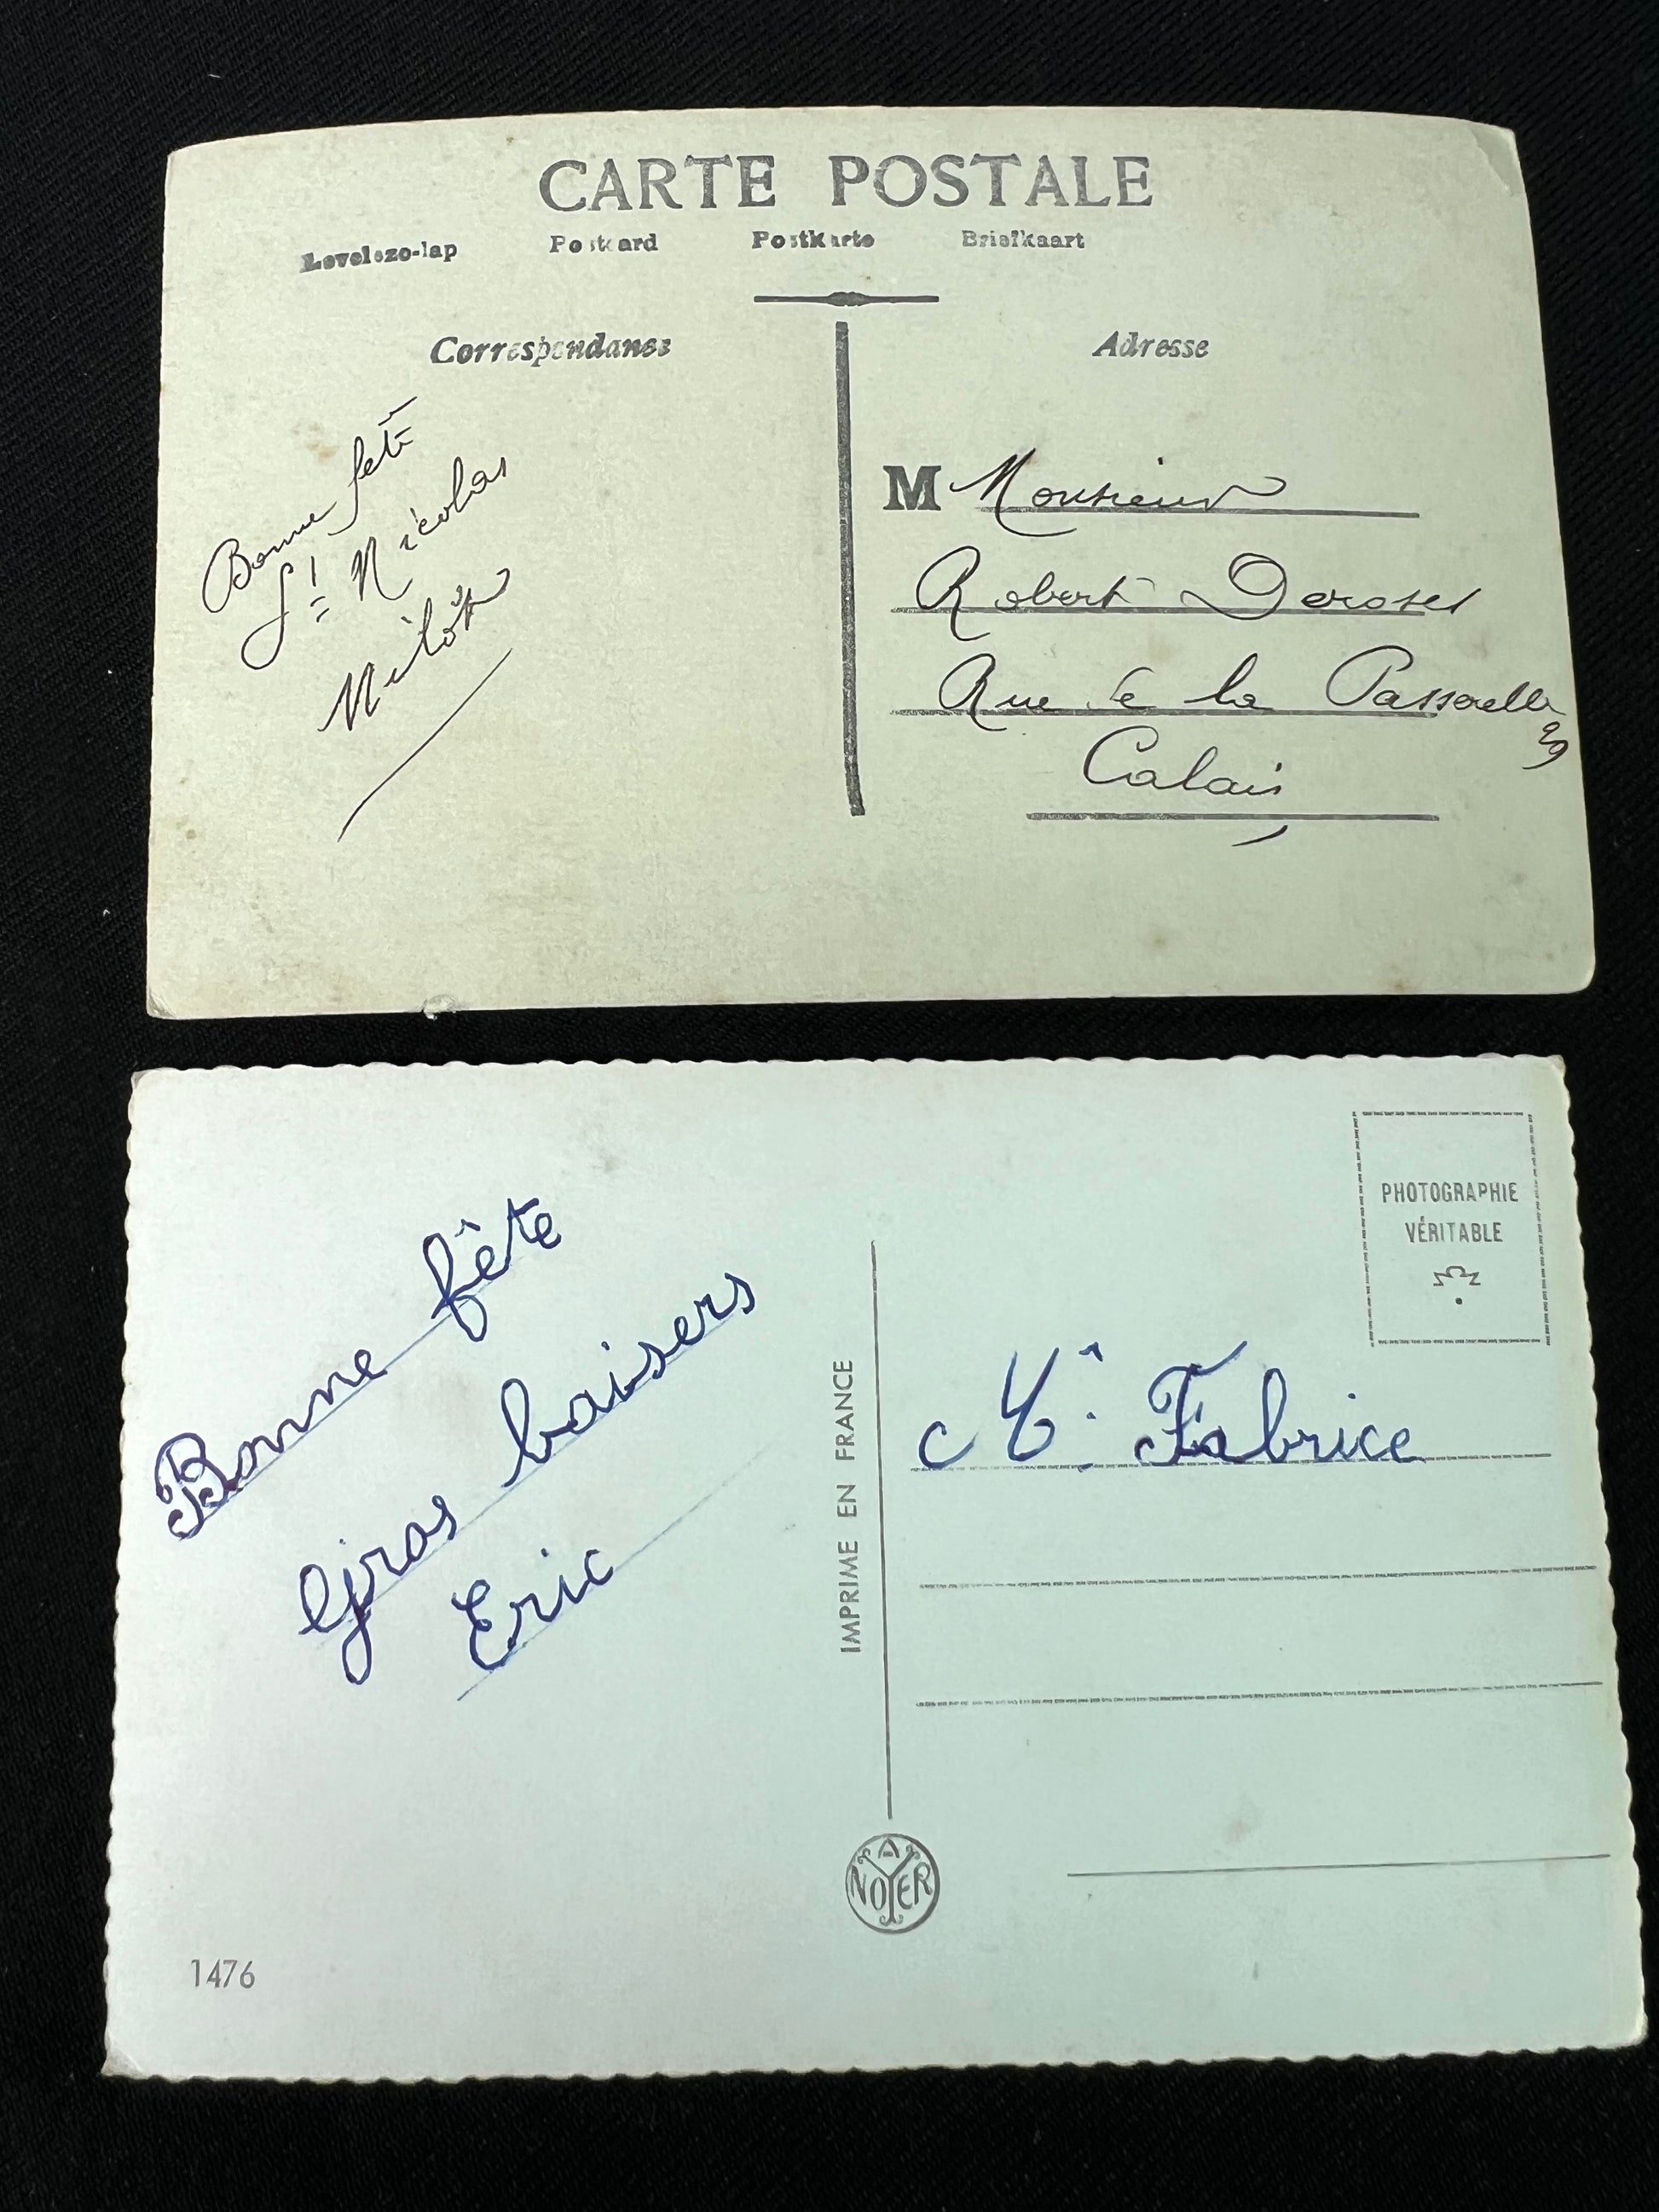 CARTE POSTALE
Levelezo-lap Postcard Postkarte Briefkaart
Correspondance
Adresse
Bonne fete
St Nicolas
M Monsieur
Robert Deroses
Rue de la Passerelle
29
Calais
PHOTOGRAPHIE
VÉRITABLE
Bonne fête
Gros baisers
Eric
IMPRIME EN FRANCE
Mr. Fabrice
A NOYER
1476